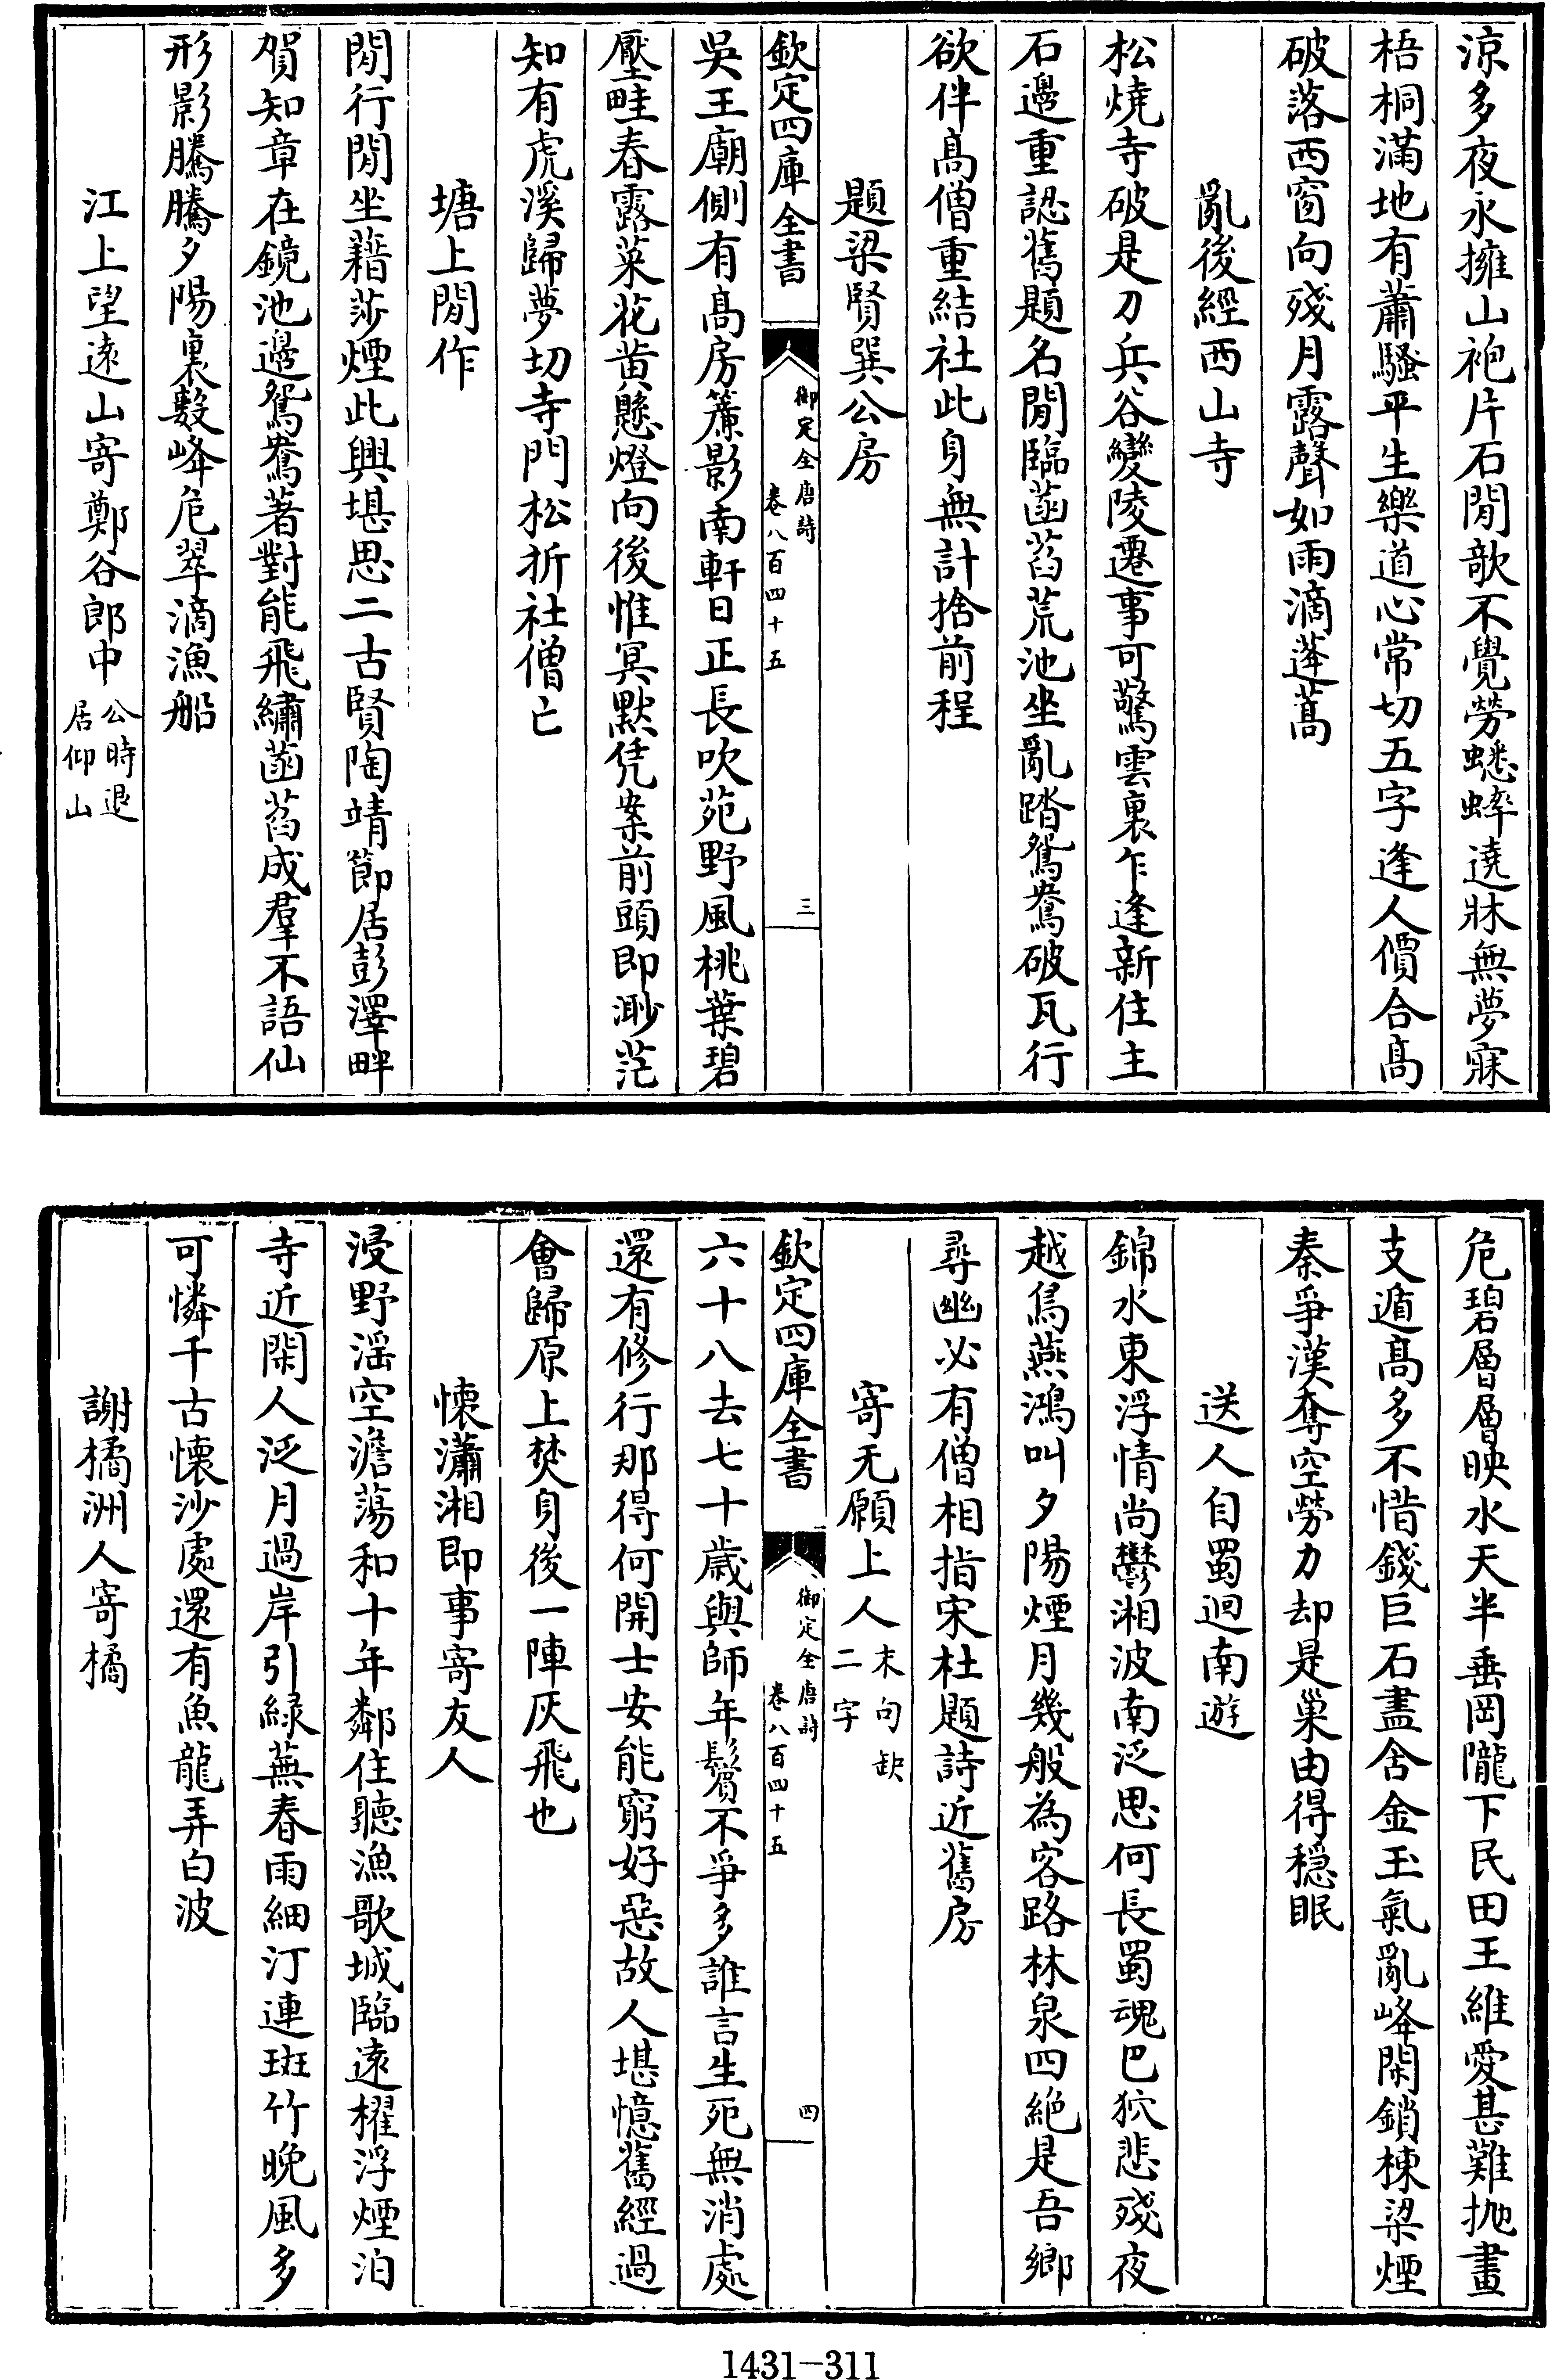 涼多夜永擁山袍片石閒歌不覺勞蟋蟀遶牀無夢寐
梧桐滿地有蕭騷平生樂道心常切五字逢人價合髙
破落西窗向殘月露聲如雨滴蓬蒿
亂後經西山寺
松燒寺破是刀兵谷變陵遷事可驚雲裏乍逢新住主
石邊重認舊題名閒臨菡萏荒池坐亂踏鴛鴦破瓦行
欲伴髙僧重結社此身無計捨前程
題梁賢巽公房
欽定四庫全書
御定全唐詩
卷八百四十五
三
吳王廟側有髙房簾影南軒日正長吹苑野風桃葉碧
壓畦春露菜花黄懸燈向後惟冥默凭案前頭即渺茫
知有虎溪歸夢切寺門松折社僧亡
塘上閒作
閒行閒坐藉莎煙此興堪思二古賢陶靖節居彭澤畔
賀知章在鏡池邊鴛鴦著對能飛繡菡萏成羣不語仙
形影騰騰夕陽裏數峰危翠滴漁船
江上望遠山寄鄭谷郎中公時退居仰山
危碧層層映水天半垂岡隴下民田王維愛甚難抛畫
支遁髙多不惜錢巨石盡含金玉氣亂峰閑鎖棟梁煙
秦爭漢奪空勞力却是巢由得穩眠
送人自蜀迴南遊
錦水東浮情尚鬱湘波南泛思何長蜀魂巴狖悲殘夜
越鳥燕鴻叫夕陽煙月幾般為客路林泉四絶是吾鄉
尋幽必有僧相指宋杜題詩近舊房
寄无願上人末句缺二字
欽定四庫全書
御定全唐詩
卷八百四十五
四
六十八去七十歲與師年鬢不爭多誰言生死無消處
還有修行那得何開士安能窮好惡故人堪憶舊經過
會歸原上焚身後一陣灰飛也
懷瀟湘即事寄友人
浸野淫空澹蕩和十年鄰住聽漁歌城臨遠櫂浮煙泊
寺近閑人泛月過岸引綠蕪春雨細汀連斑竹晚風多
可憐千古懷沙處還有魚龍弄白波
謝橘洲人寄橘
1431-311